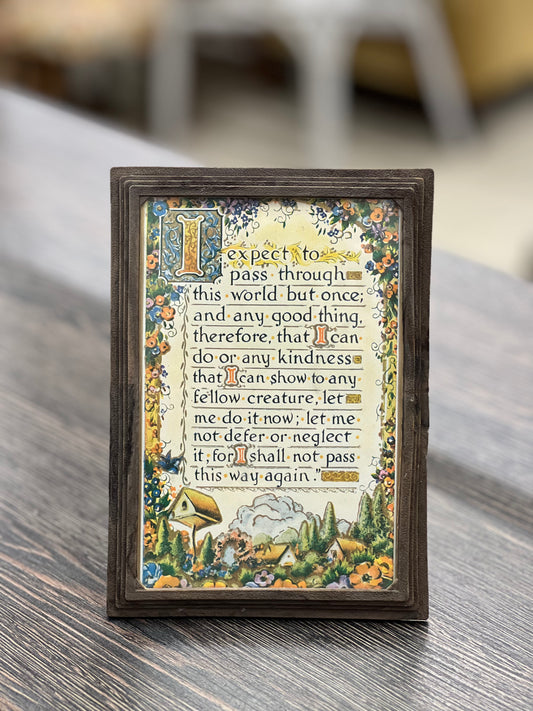 I expect to
pass through
this world but once;
and any good thing,
therefore, that I can
do or any kindness
that I can show to any
fellow creature, let
me do it now; let me
not defer or neglect
it, for I shall not pass
this way again."